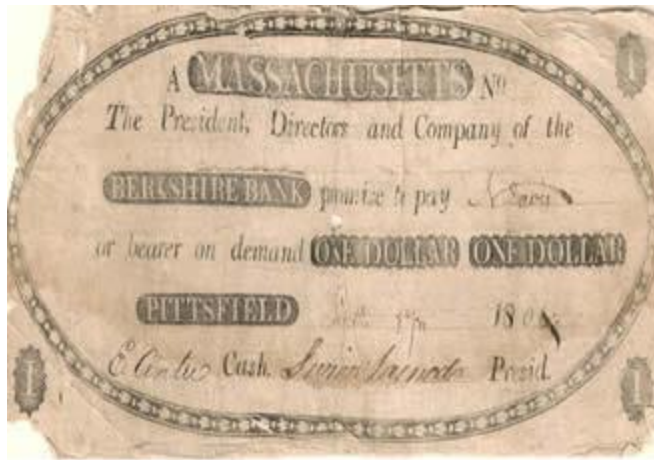 A MASSACHUSETTS No
The President, Directors and Company of the
BERKSHIRE BANK promise to pay
or bearer on demand ONE DOLLAR ONE DOLLAR
PITTSFIELD 180
Cash. Presid.
1
1
1